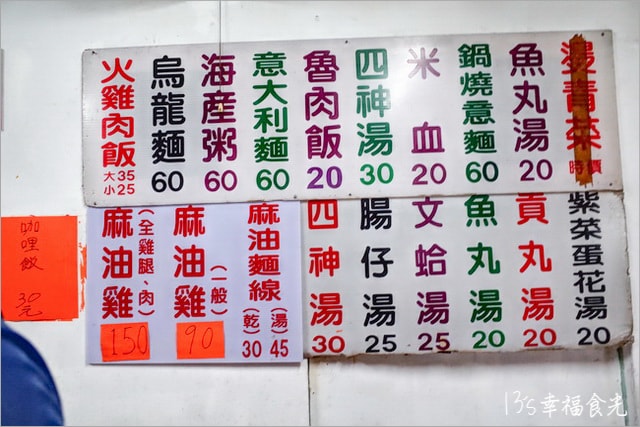 燙青菜 時價
魚丸湯 20
鍋燒意麵 60
米血 20
四神湯 30
魯肉飯 20
意大利麵 60
海產粥 60
烏龍麵 60
火雞肉飯 大35 小25
紫菜蛋花湯 20
貢丸湯 20
魚丸湯 20
文蛤湯 25
腸仔湯 25
四神湯 30
麻油麵線 (湯)45 (乾)30
麻油雞 (一般) 90
麻油雞 (全雞腿、肉) 150
咖哩飯 30元
13's幸福食光